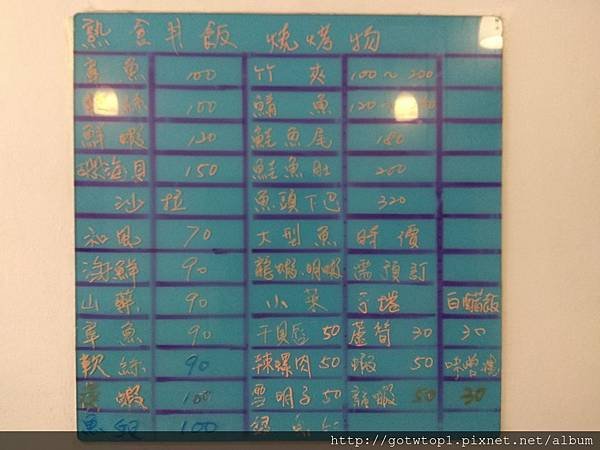 熟食丼飯 燒烤物
魚 100 竹夾 100~200
100 鯖魚 120
鮮蝦 120 鮭魚尾 180
海貝 150 鮭魚肚 200
沙拉 魚頭下巴 320
和風 70 大型魚 時價
海鮮 90 龍蝦.明蝦 需預訂
山藥 90 小菜 手捲 白醋飯
章魚 90 干貝唇 50 蘆筍 30 30
軟絲 90 辣螺肉 50 蝦 50 味噌湯
蝦 100 雪明子 50 龍蝦 50 30
魚卵 100
http://gotwtop1.pixnet.net/album